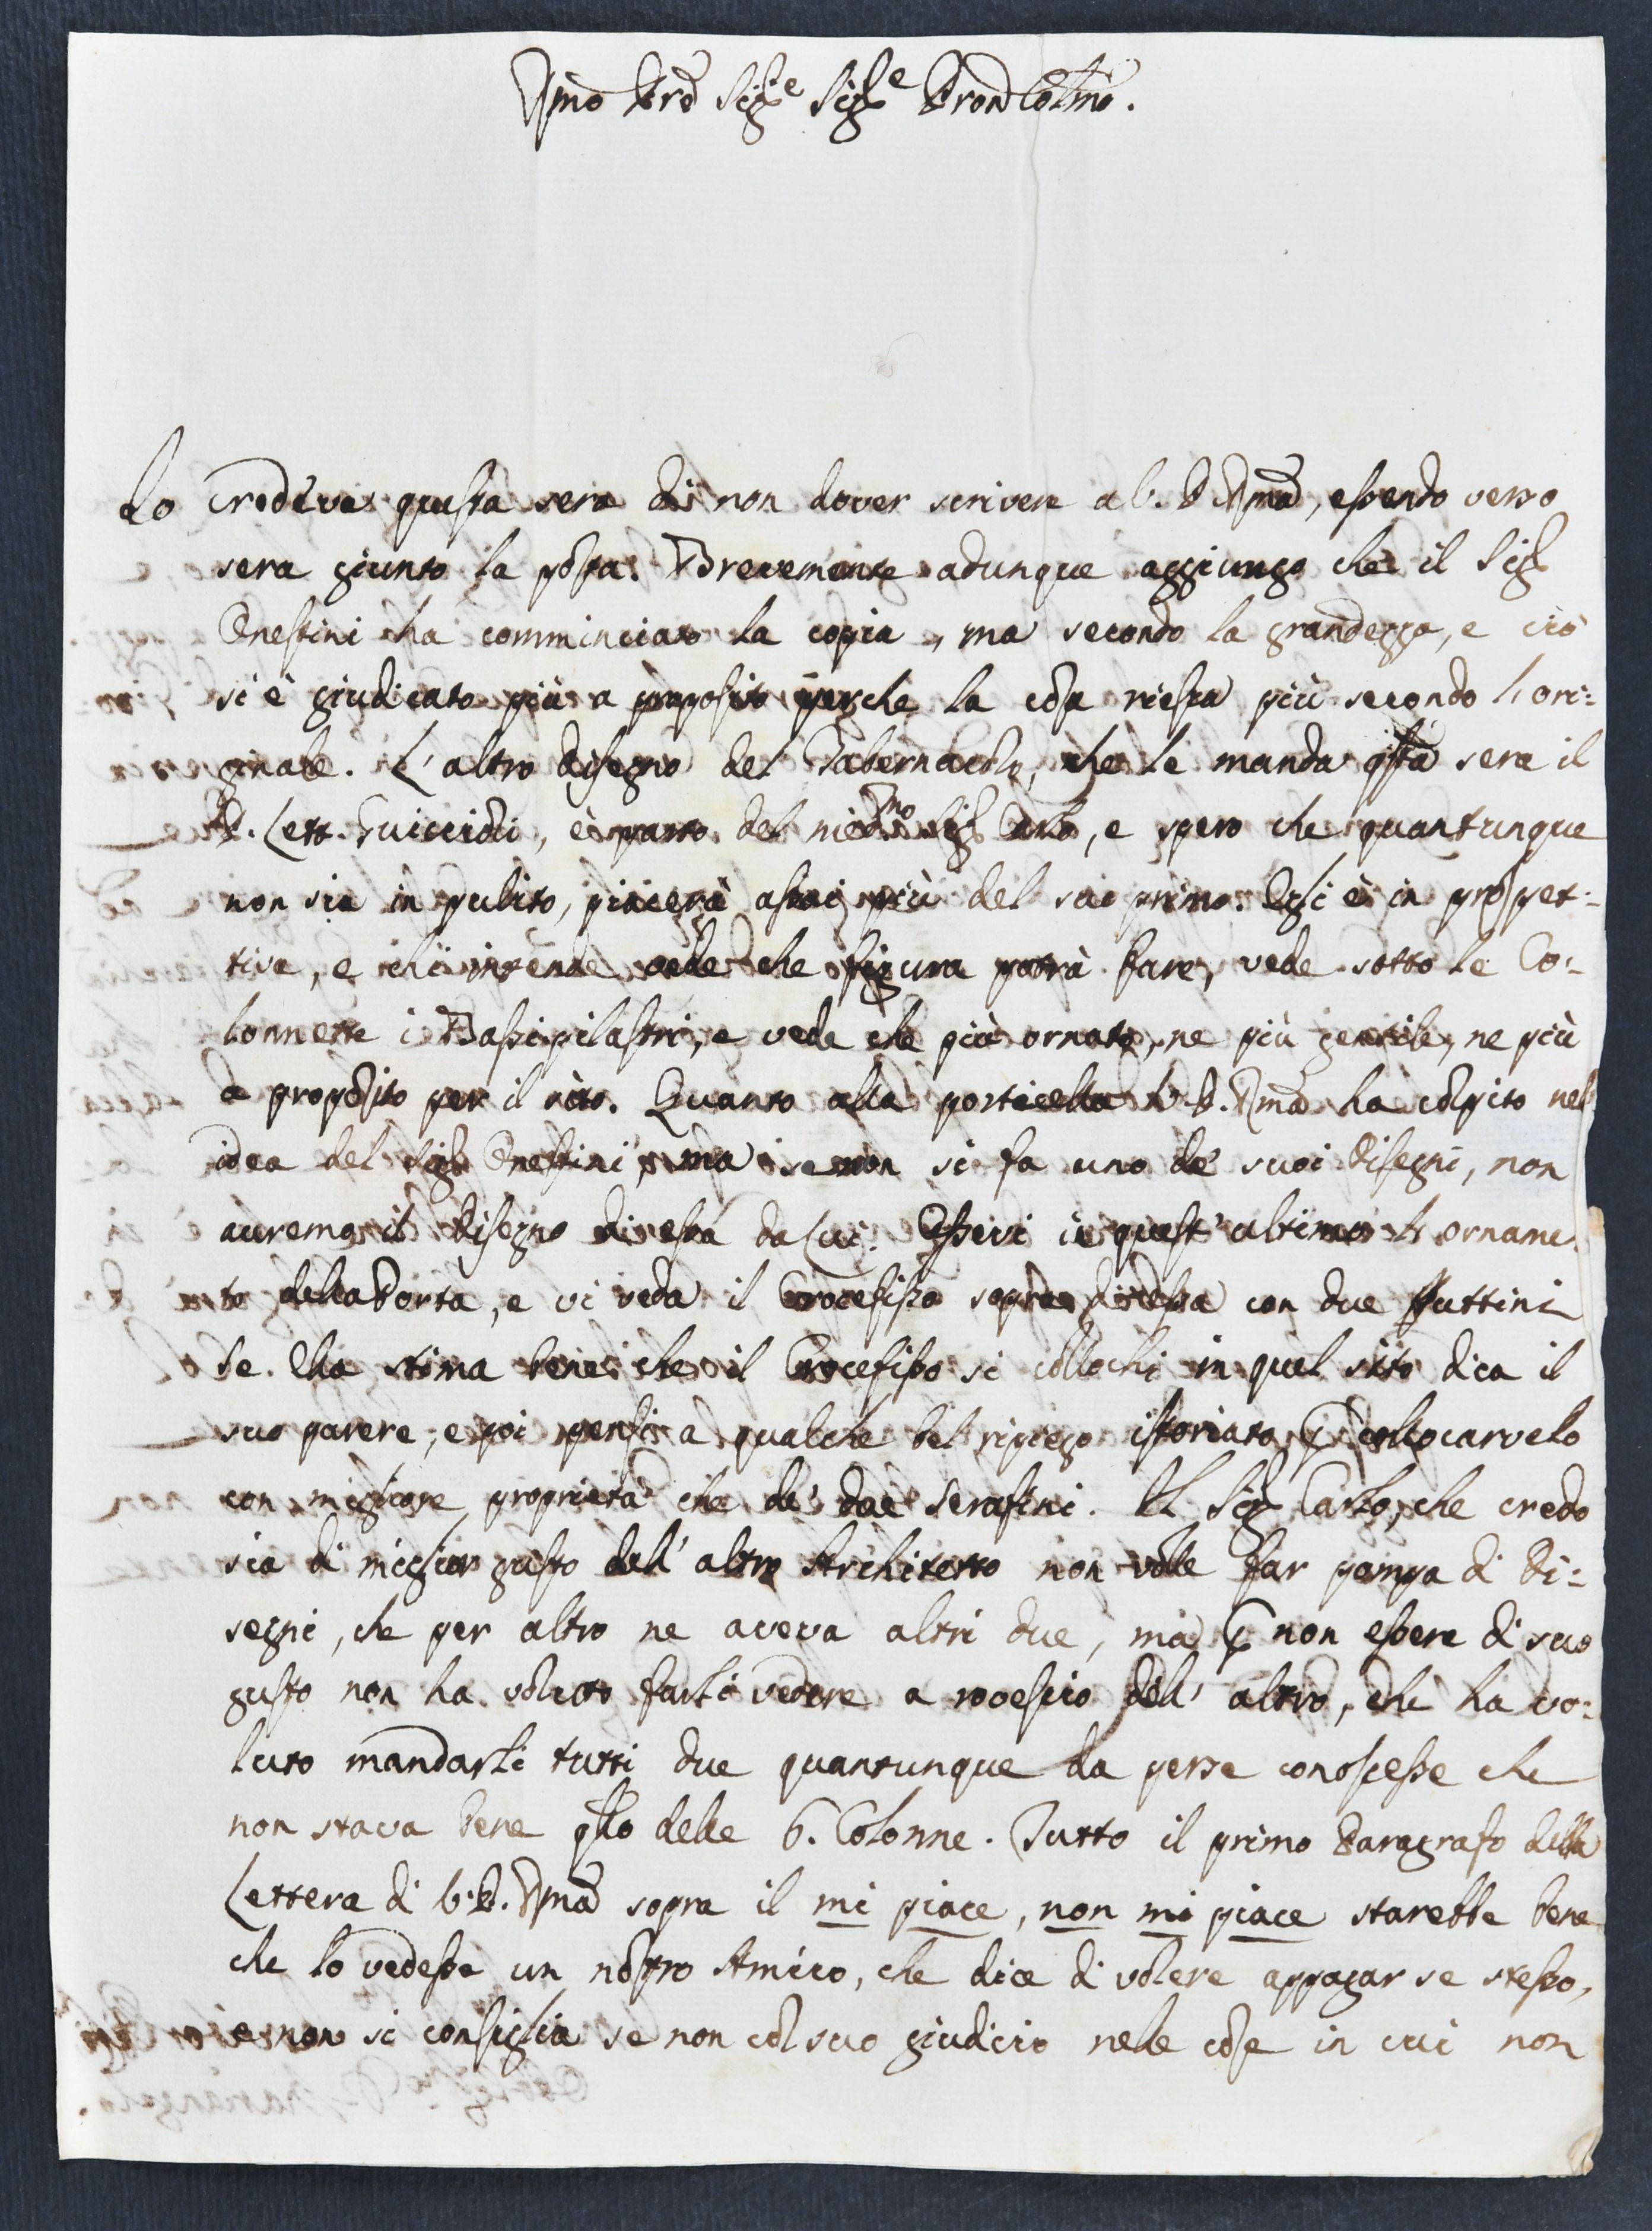 Illmo Prd Sigre Sigre Pron Colmo.
Io Credeva questa sera di non dover scrivere a V. P. Illma, essendo verso
sera giunto la posta. Brevemente adunque aggiungo che il Sigr
Onestini ha comminciato la copia, ma secondo la grandezza, e ciò
si è giudicato più a proposito perche la cosa riesca più secondo l'ori:
ginale. L'altro disegno del Tabernacolo, che le manda qsta sera il
P. Lett. Guiccioli, è parto del medmo Sigr Carlo, e spero che quantunque
non sia in pulito, piacerà assai più del suo primo. Egli è in prospet:
tiva, e chi intende vede che figura potrà fare, vede sotto le Co:
lonnette i Bassi pilastri, e vede che più ornato, ne più gentile, ne più
a proposito per il sito. Quanto alla porticella V. P. Illma ha colpito nel
idea del Sigr Onestini, ma se non si fa uno de' suoi disegni, non
avremo il disegno di essa da lui. Essevi in quest' ultimo l'orname
to della Porta, e vi veda il Crocefisso sopra di essa con due puttini
Se Ella stima bene che il Crocefisso si collochi in quel sito dica il
suo parere, e poi pensi a qualche bel ripiego istoriato p collocarvelo
con migliore proprietà che de' due Serafini. Il Sigr Carlo, che credo
sia di miglior gusto dell' altro Architetto non volle far pompa di di:
segni, che per altro ne aveva altri due, ma p non essere di suo
gusto non ha voluto farli vedere a rovescio dell' altro, che ha vo:
luto mandarli tutti due quantunque da perse conoscesse che
non stava bene qllo delle 6. Colonne. Tutto il primo Paragrafo della
Lettera di V. P. Illma sopra il mi piace, non mi piace starebbe bene
che lo vedesse un nostro Amico, che dice di volere appagar se stesso,
e non si consiglia se non col suo giudicio nele cose in cui non